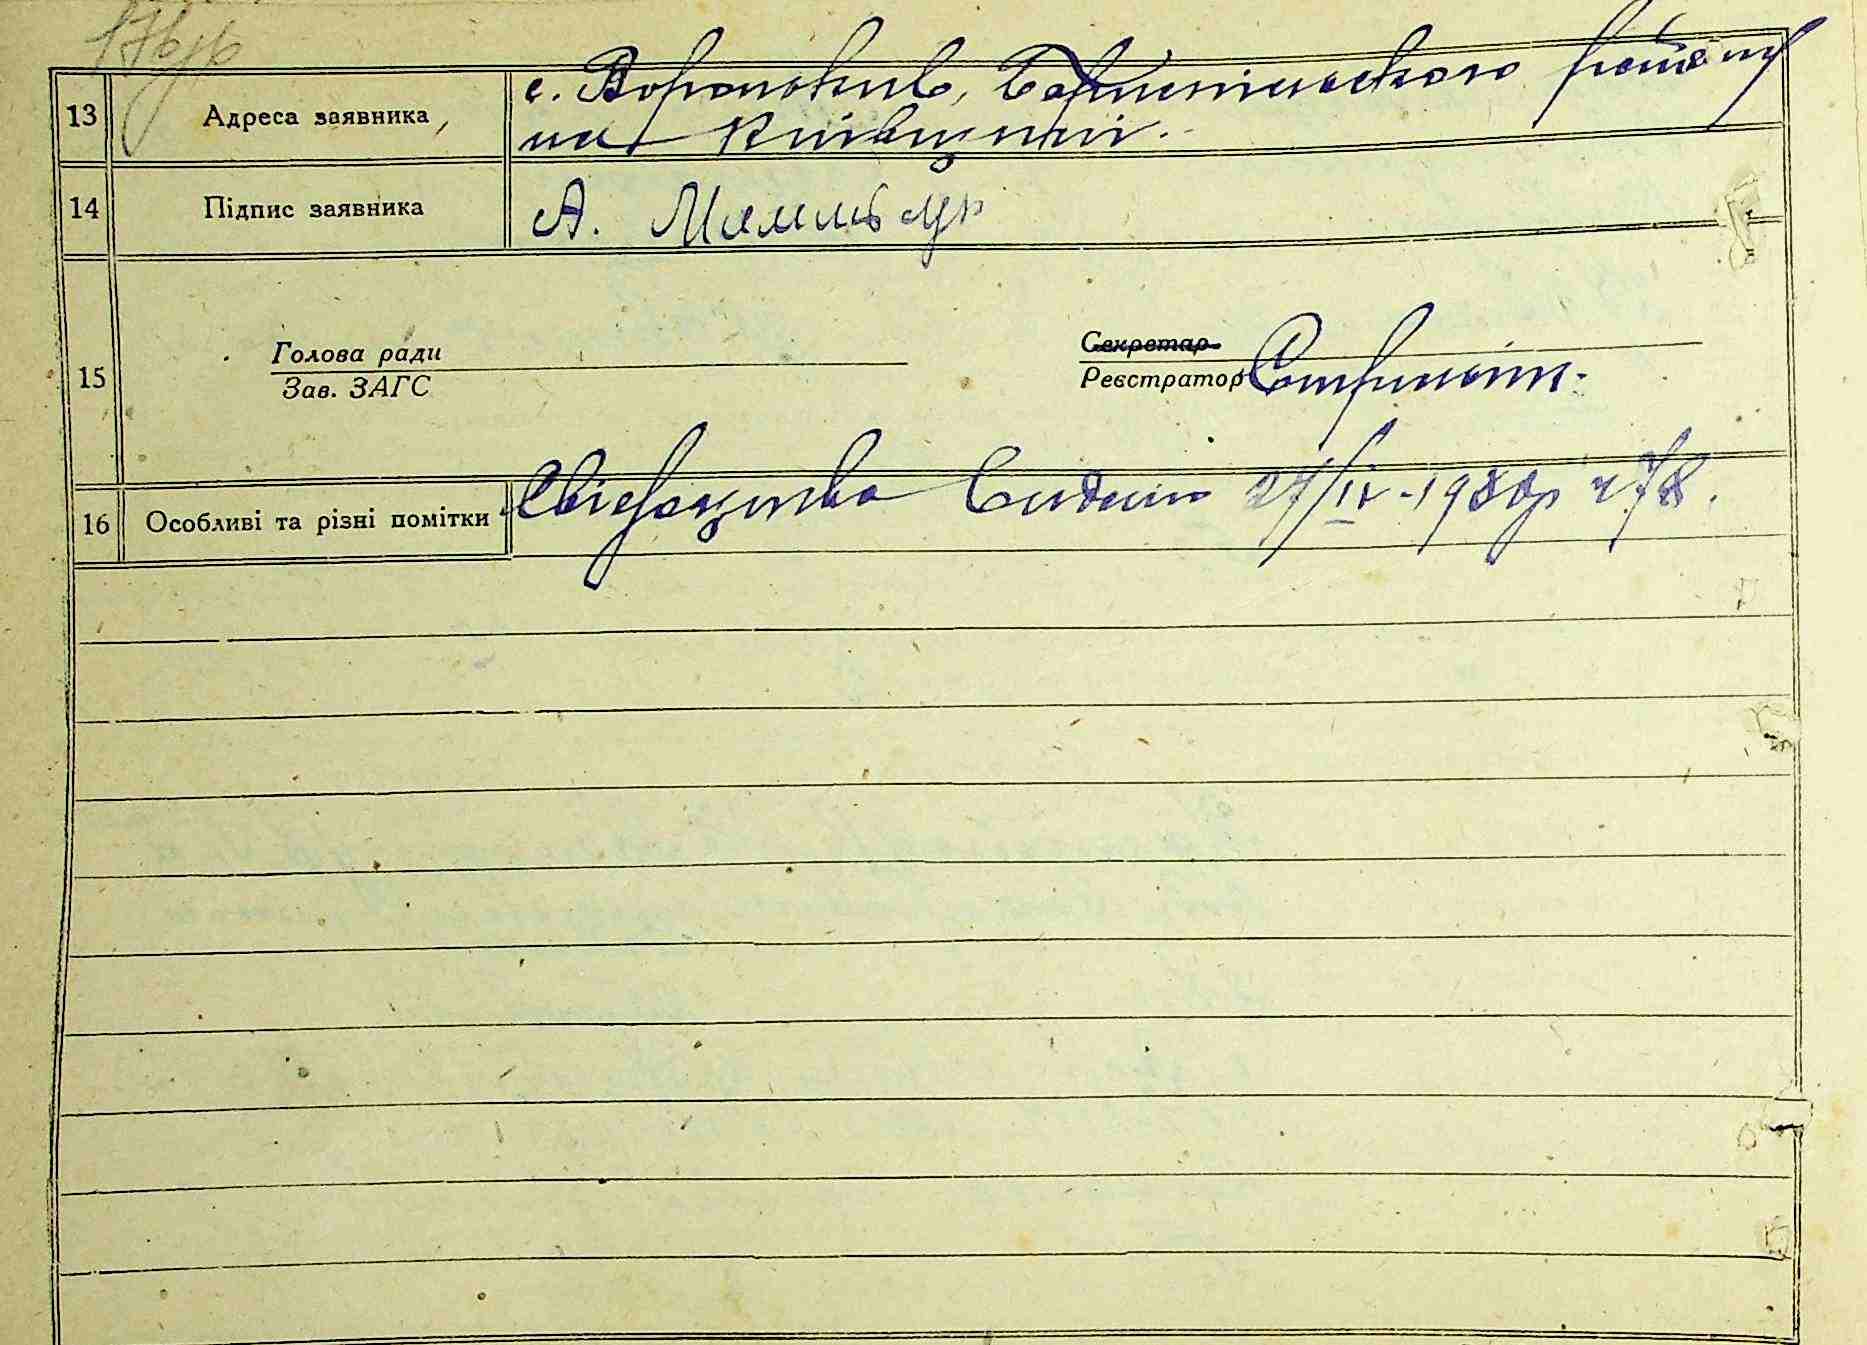 13 Адреса заявника с. Вороньків, Бориспільського району
на Київщині.
14 Підпис заявника А.
15 Голова ради Секретар
Зав. ЗАГС Реєстратор
16 Особливі та різні помітки Свідоцтво Видано 27/IV-1930р